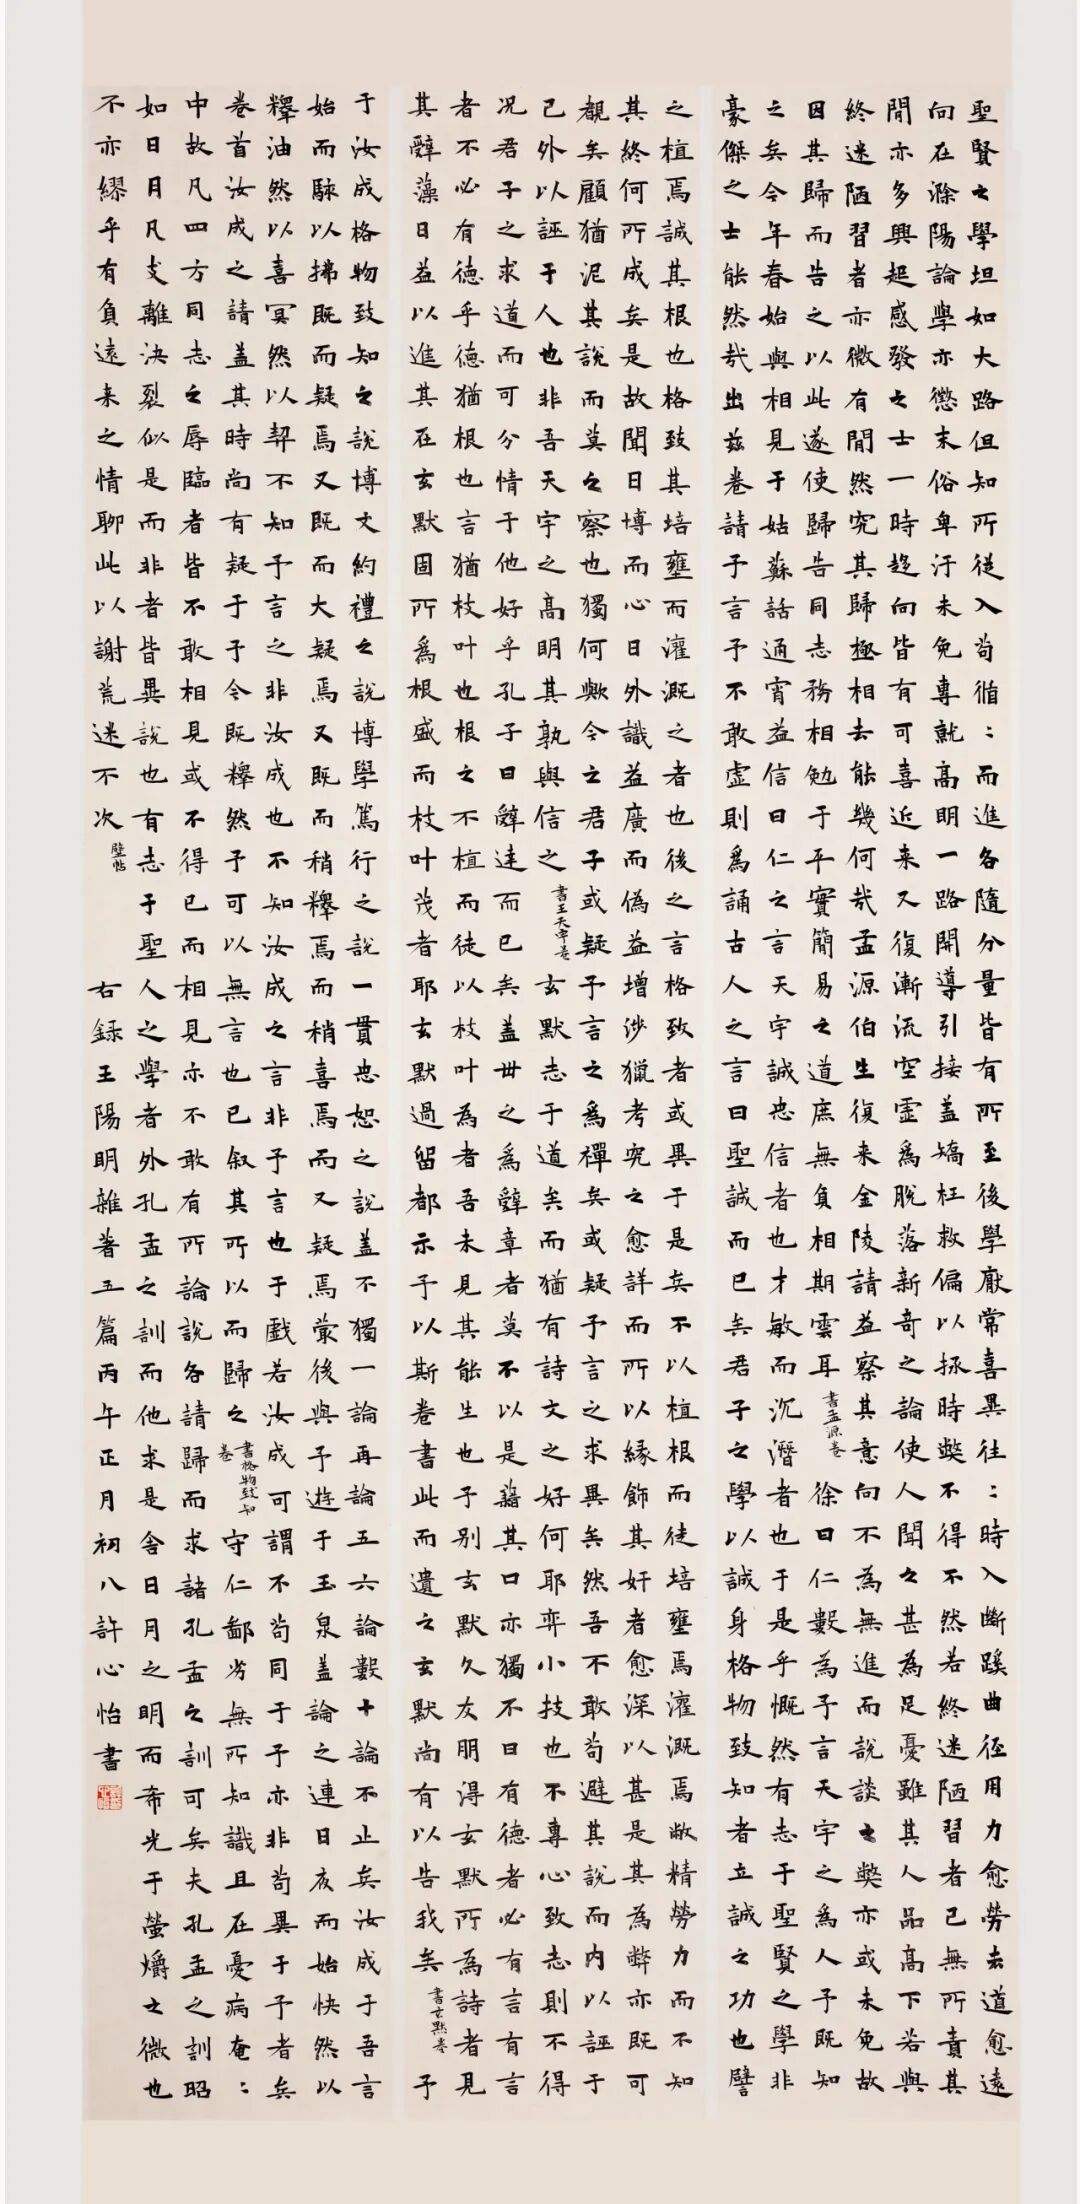 聖賢之學坦如大路但知所從入苟循〻而進各隨分量皆有所至後學厭常喜異往〻時入斷蹊曲径用力愈勞去道愈遠
向在滁陽論學亦懲末俗卑汙未免專就高明一路開導引接盖矯枉救偏以拯時獘不得不然若終迷陋習者已無所責其
閒亦多興起感發之士一時趍向皆有可喜近来又復漸流空虛爲脫落新奇之論使人聞之甚為足憂雖其人品高下若與
終迷陋習者亦微有閒然究其歸極相去能幾何哉孟源伯生復来金陵請益察其意向不為無進而說談之獘亦或未免故
因其歸而告之以此遂使歸告同志務相勉于平實簡易之道庶無負相期雲耳書孟源卷徐曰仁數為予言天宇之為人予既知
之矣今年春始與相見于姑蘇話通宵益信曰仁之言天宇誠忠信者也才敏而沉潛者也于是乎慨然有志于聖賢之學非
豪傑之士能然哉出茲卷請予言予不敢虛則爲誦古人之言曰聖誠而已矣君子之學以誠身格物致知者立誠之功也譬
之植焉誠其根也格致其培壅而灌溉之者也後之言格致者或異于是矣不以植根而徒培壅焉灌溉焉敝精勞力而不知
其終何所成矣是故聞日博而心日外識益廣而偽益增涉獵考究之愈詳而所以緣飾其奸者愈深以甚是其為弊亦既可
覩矣顧猶泥其說而莫之察也獨何歟今之君子或疑予言之爲禪矣或疑予言之求異矣然吾不敢苟避其說而内以誣于
已外以誣于人也非吾天宇之高明其孰與信之書王天宇卷玄默志于道矣而猶有詩文之好何耶弈小技也不專心致志則不得
况君子之求道而可分情于他好乎孔子曰辭達而已矣盖世之爲辭章者莫不以是藉其口亦獨不曰有德者必有言有言
者不必有德乎德猶根也言猶枝叶也根之不植而徒以枝叶為者吾未見其能生也予别玄默久友朋得玄默所為詩者見
其辭藻日益以進其在玄默固所爲根盛而枝叶茂者耶玄默過留都示予以斯卷書此而遺之玄默尚有以告我矣書玄默卷予
于汝成格物致知之說博文約禮之說博學篤行之說一貫忠恕之說盖不獨一論再論五六論數十論不止矣汝成于吾言
始而駭以拂既而疑焉又既而大疑焉又既而稍釋焉而稍喜焉而又疑焉最後與予遊于玉泉盖論之連日夜而始快然以
釋油然以喜冥然以契不知予言之非汝成也不知汝成之言非予言也于戲若汝成可謂不苟同于予亦非苟異于予者矣
卷首汝成之請盖其時尚有疑于予今既釋然予可以無言也已叙其所以而歸之書格物致知卷守仁鄙劣無所知識且在憂病奄〻
中故凡四方同志之辱臨者皆不敢相見或不得已而相見亦不敢有所論說各請歸而求諸孔孟之訓可矣夫孔孟之訓昭
如日月凡支離決裂似是而非者皆異說也有志于聖人之學者外孔孟之訓而他求是舍日月之明而希光于螢爝之微也
不亦繆乎有負遠来之情聊此以謝荒迷不次壁帖右録王陽明雜著五篇丙午正月初八許心怡書